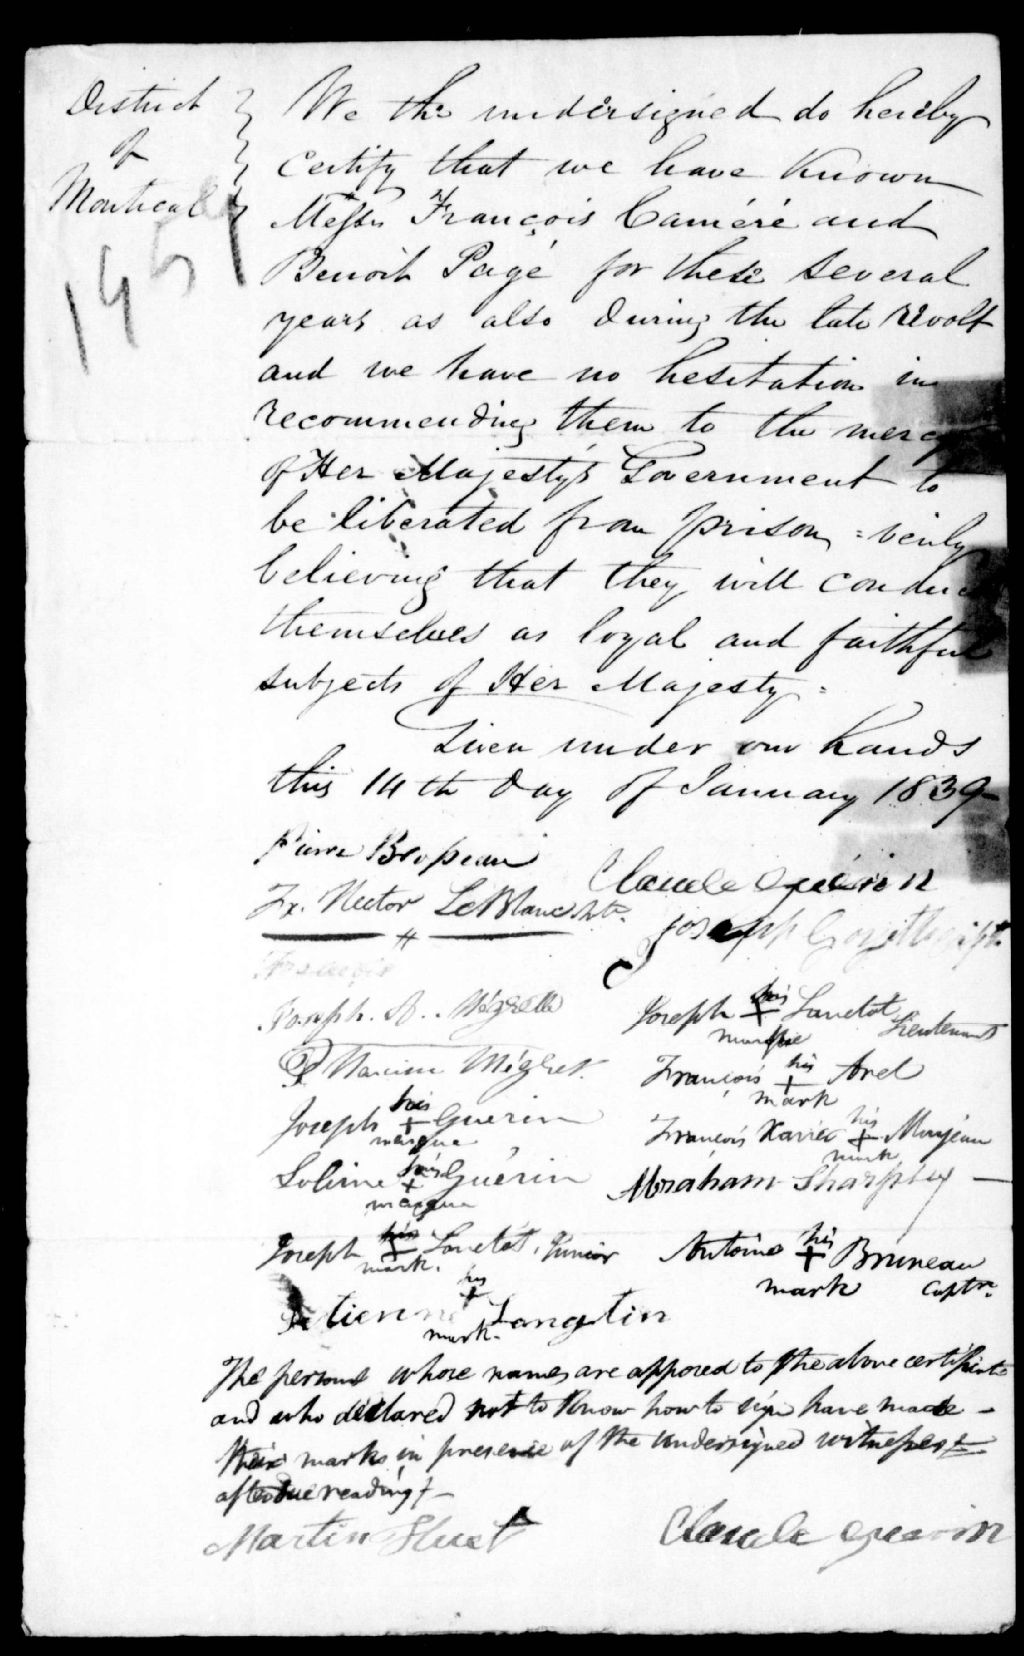 District
of
Montreal
1451
We the undersigned do hereby
certify that we have Known
Messrs François Caméré and
Benoit Pagé for these several
years as also during the late revolt
and we have no hesitation in
recommending them to the mercy
of Her Majesty's Government to
be liberated from prison, verily
believing that they will conduct
themselves as loyal and faithful
subjects of Her Majesty
Given under our hands
this 14th day of January 1839
Pierre
Fx. Hector LeBlanc
Claude Guérin
Joseph
Joseph. A.
Narcisse
Joseph his + Guérin
marque
Solime his + Guérin
marque
Joseph his + Lanctôt, Junior
mark.
Etienne his + Langtin
mark.
Joseph his + Lanctôt Lieutenant
marque
François his + Avel
mark
François Xavier his + Monjeau
mark
Abraham Sharpley
Antoine his + Bruneau
mark Captn.
The persons whose names are apposed to the above certificate
and who declared not to Know how to sign have made
their marks in presence of the undersigned witnesses
after due reading
Martin Huet
Claude Guérin